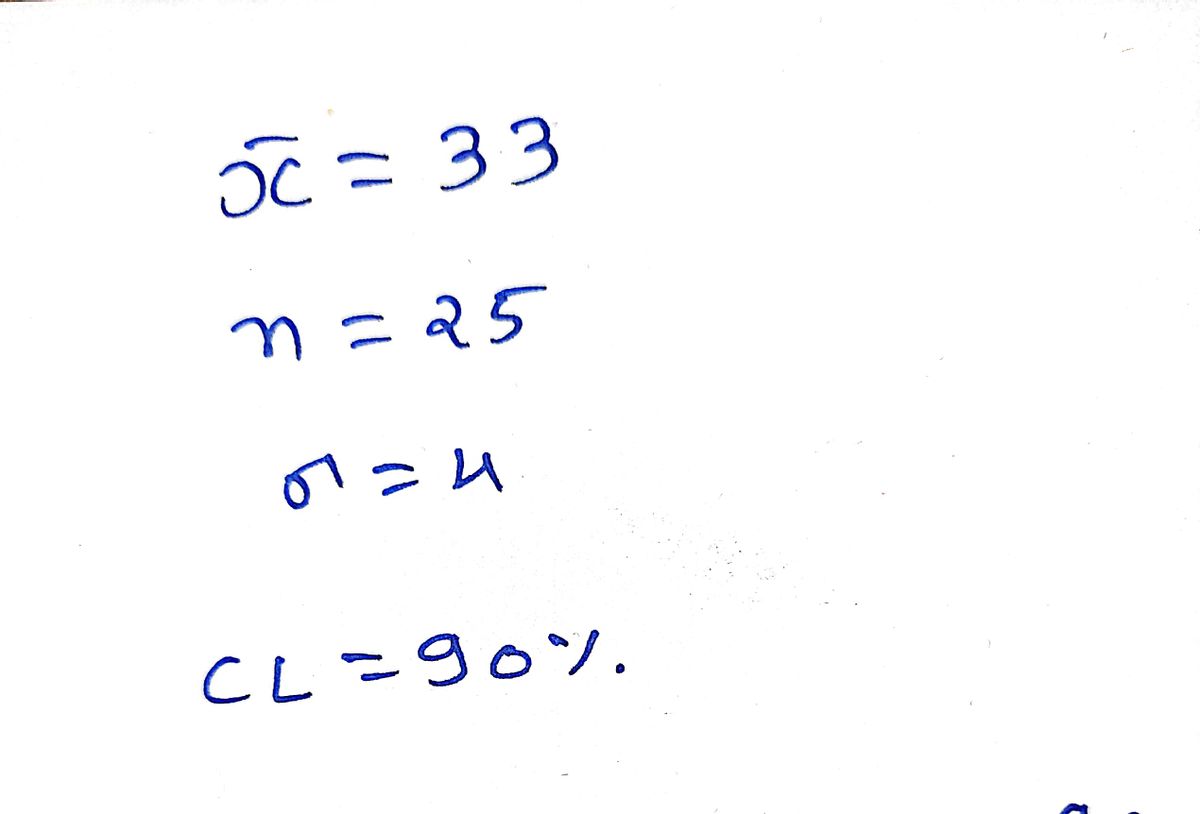 x̄ = 33
n = 25
σ = 4
CL = 90%.